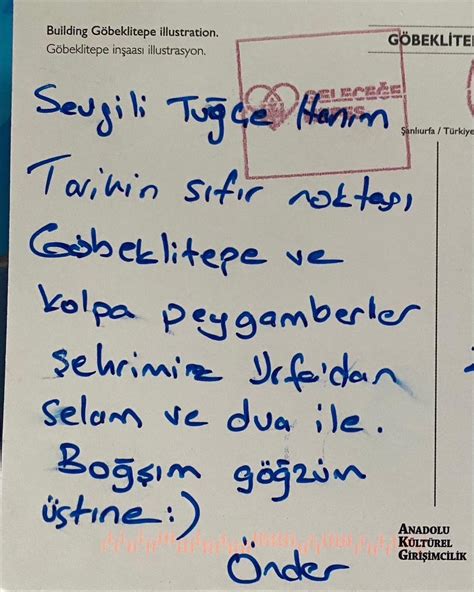 Building Göbeklitepe illustration.
Göbeklitepe inşaası illustrasyon.
GÖBEKLİTE
GELECEĞE
NEFES
Şanlıurfa / Türkiye
Sevgili Tuğçe Hanım
Tarihin sıfır noktası
Göbeklitepe ve
kolpa peygamberler
Şehrimiz Urfa'dan
selam ve dua ile.
Boğşım göğzüm
üştine:)
Önder
ANADOLU
KÜLTÜREL
GİRİŞİMCİLİK